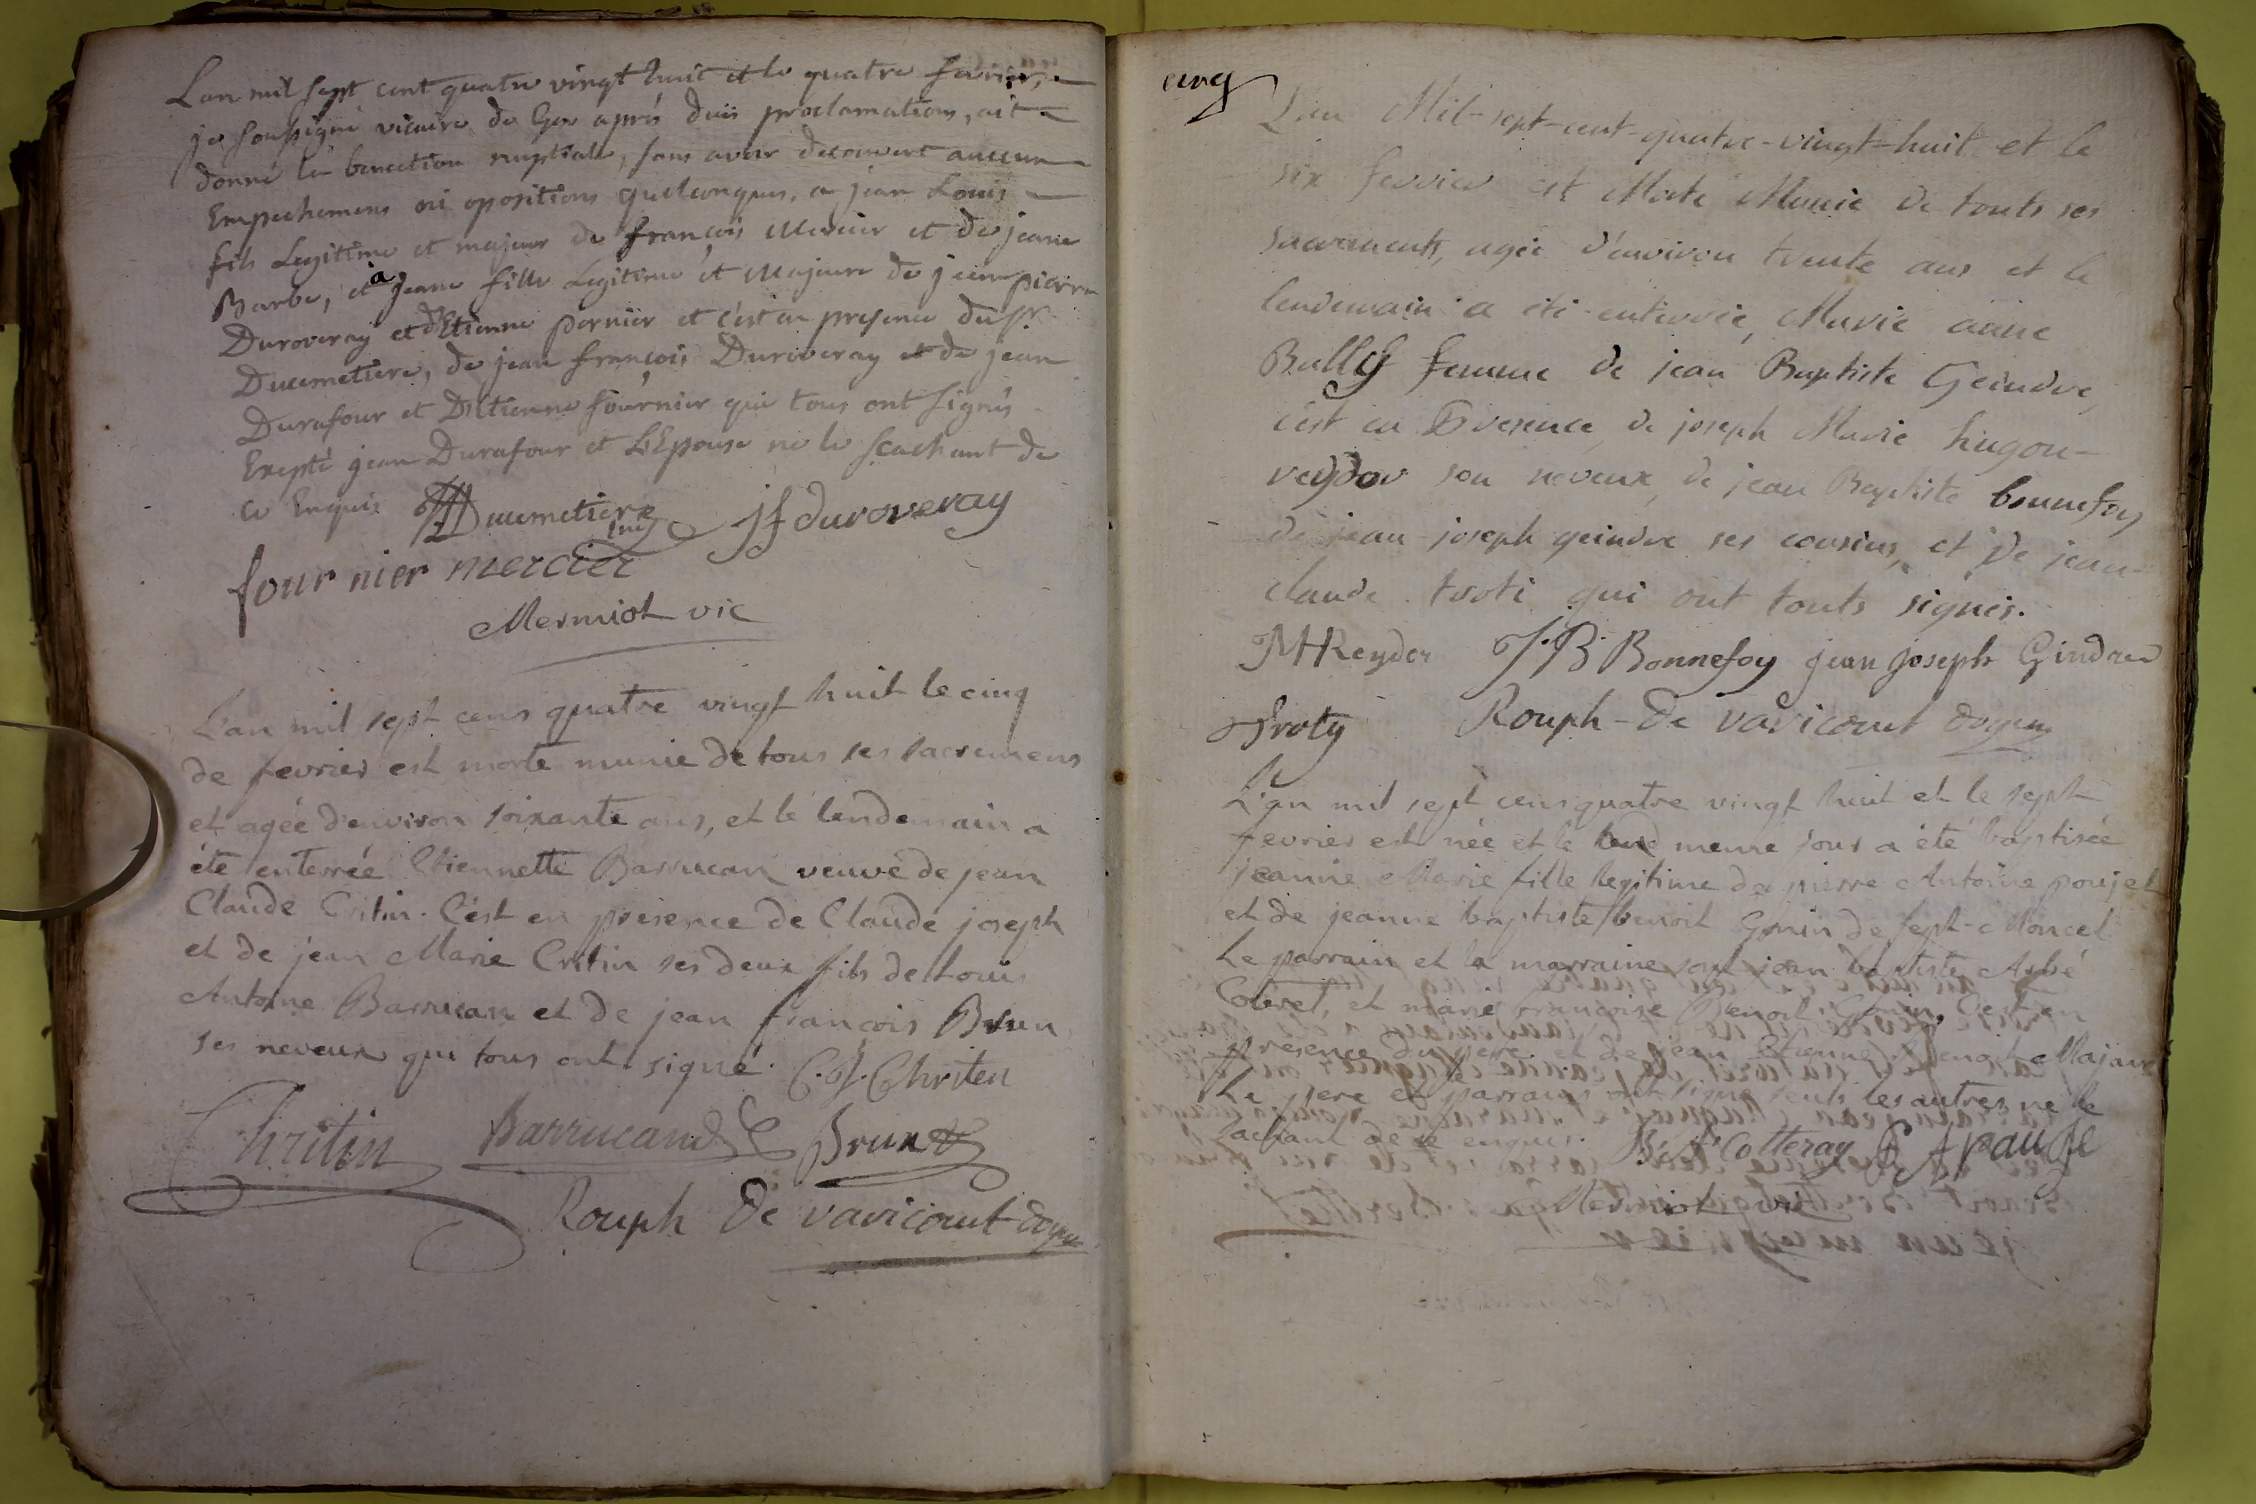 L'an mil sept cent quatre vingt huit et le quatre fevrier,
je soussigné vicaire de Gex après deüs proclamations, ait
donné la benection nuptiale, sans avoir decouvert aucun
Empechemens ni opositions quelconques, a jean Louis
fils Legitime et majeur de françois Mercier et de jeane
Barbe, et a Jeane fille Legitime et Majeure de jean pierre
Duroveray et d'Etienne pernier et c'est en presence du Sr
Ducimetiere, de jean françois Duroveray et de jean
Durafour et D'Etienne fournier qui tous ont signés
Exepté jean Durafour et L'Epouse ne le scachant de
ce Enquis Ducimetiere jf duroveray
four nier mercier
Mermiot vic
L'an mil sept cens quatre vingt huit le cinq
de fevrier est morte munie de tous ses sacremens
et agée d'environ soixante ans, et le lendemain a
été enterrée Etiennette Barrucan veuve de jean
Claude Critin. C'est en présence de Claude joseph
et de jean Marie Critin ses deux fils de Louis
Antoine Barrucan et de jean françois Brun
ses neveux qui tous ont signé. C. J. Chriten
Chritin Barrucand Brun
Rouph De varicourt doyen
cinq
L'an Mil-sept-cent-quatre-vingt-huit et le
six fevrier est Morte Munie de touts ses
sacrements, agée d'environ trente ans et le
lendemain a été enterrée, Marie aime
Bally femme de jean Baptiste Geindre,
c'est en Presence de joseph Marie hugon-
reydor son neveux, de jean Baptiste bonnefoy
de jean joseph geindre ses cousins, et de jean-
claude troti qui ont touts signés.
JMHReyder J. B. Bonnefoy jean joseph Gindre
Troty Rouph-De varicourt doyen
L'an mil sept cens quatre vingt huit et le sept
fevrier est née et le meme jour a été baptisée
jeanne Marie fille legitime de pierre Antoine poujet
et de jeanne baptiste benoit Gonin de sept-Moncel
Le parrain et la marraine sont jean baptiste Aybé
Coteret, et marie françoise Benoit Gonin. C'est en
présence du pere et de jean Etienne Benoit Majaux
Le pere et parrain ont signé seuls les autres ne le
sachant de ce enquis. B. A. Cotteray P A pauje
Mermiot vi